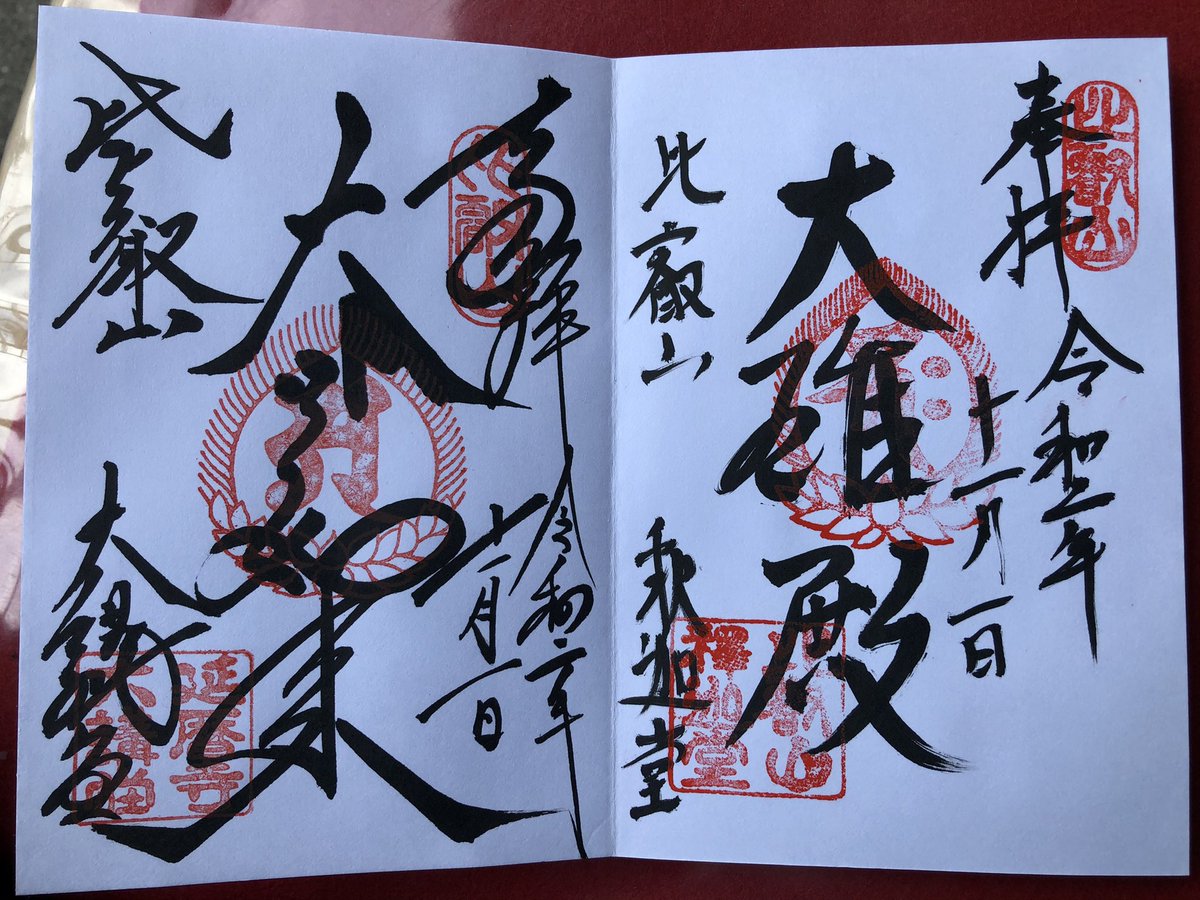 奉拝
令和二年
十一月一日
大雄殿
比叡山
釈迦堂
比叡山
比叡山
釋迦堂
奉拝
令和二年
十一月一日
大日如来
比叡山
大講堂
比叡山
延暦寺
大講堂